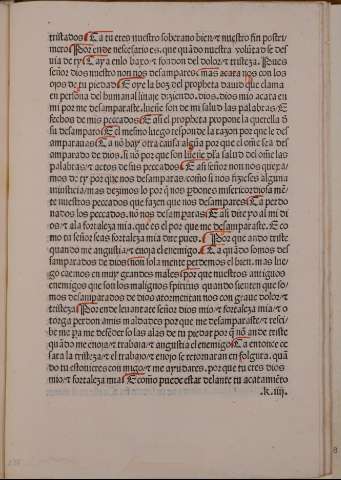 tristados La tu eres nuestro soberano bien ⁊ nuestro fin postri
mero Por ende nescesario es. que quãdo nuestra volũtad se des
via de ty Cay a en lo baxo ⁊ fondon del dolor ⁊ tristeza. Pues
señor dios nuestro non nos desampares mas acata nos con los
ojos de tu piedad Oye la boz del propheta dauid que clama
en persona del humanal linaje diziendo. dios. dios mio acata en
mi por me desamparaste. lueñe son de mi salud las palabras E
fechos de mis peccados E asi el propheta propone la querella d̃
su desamparo E el mesmo luego responde la razon por que le des
amparauas Ca nõ hay otra causa algũa por que el oñe sea des
amparado de dios. si nõ por que son lueñe d̃la salud del oñe las
palabras ⁊ actos de sus peccados E asi señor non nos quexa
mos de ty por que nos desamparas como si nos fizieses alguna
iniusticia mas dezimos lo por q̃ nos perdones misericordiosamẽ
te nuestros peccados que fazen que nos desampares Ca perdo
nados los peccados. no nos desamparas E asi dire yo al mi di
os ⁊ ala fortaleza mia. que es el por que me desamparaste. E co
mo tu señor seas fortaleza mia dire pues. Por que ando triste
quando me angustia ⁊ enoja el enemigo Ca quãdo somos des
amparados de dios non sola mente perdemos el bien. mas lue
go caemos en muy grandes males por que nuestros antiguos
enemigos que son los malignos spiritus quando sienten que so
mos desamparados de dios atormentan nos con graue dolor ⁊
tristeza Por ende leuantate señor dios mio ⁊ fortaleza mia ⁊ o
torga perdon amis maldades por que me desamparaste ⁊ resci
be me ya me defender so las alas de tu piedad por q̃ nõ ande triste
quãdo me enoja ⁊ trabaja ⁊ angustia el enemigo Ca entonce ce
sara la tristeza ⁊ el trabajo ⁊ enojo se retornaran en folgura. quã
do tu estouieres con migo ⁊ me ayudares. porque tu eres dios
mio ⁊ fortaleza mia E como puede estar delante tu acatamẽto
.k.iiij.